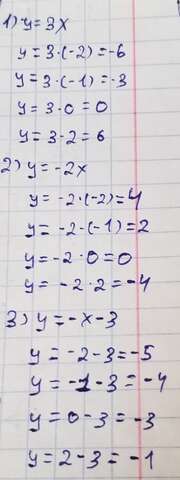 1) y=3x
y=3·(-2)=-6
y=3·(-1)=-3
y=3·0=0
y=3·2=6
2) y=-2x
y=-2·(-2)=4
y=-2·(-1)=2
y=-2·0=0
y=-2·2=-4
3) y=-x-3
y=-2-3=-5
y=-1-3=-4
y=0-3=-3
y=2-3=-1